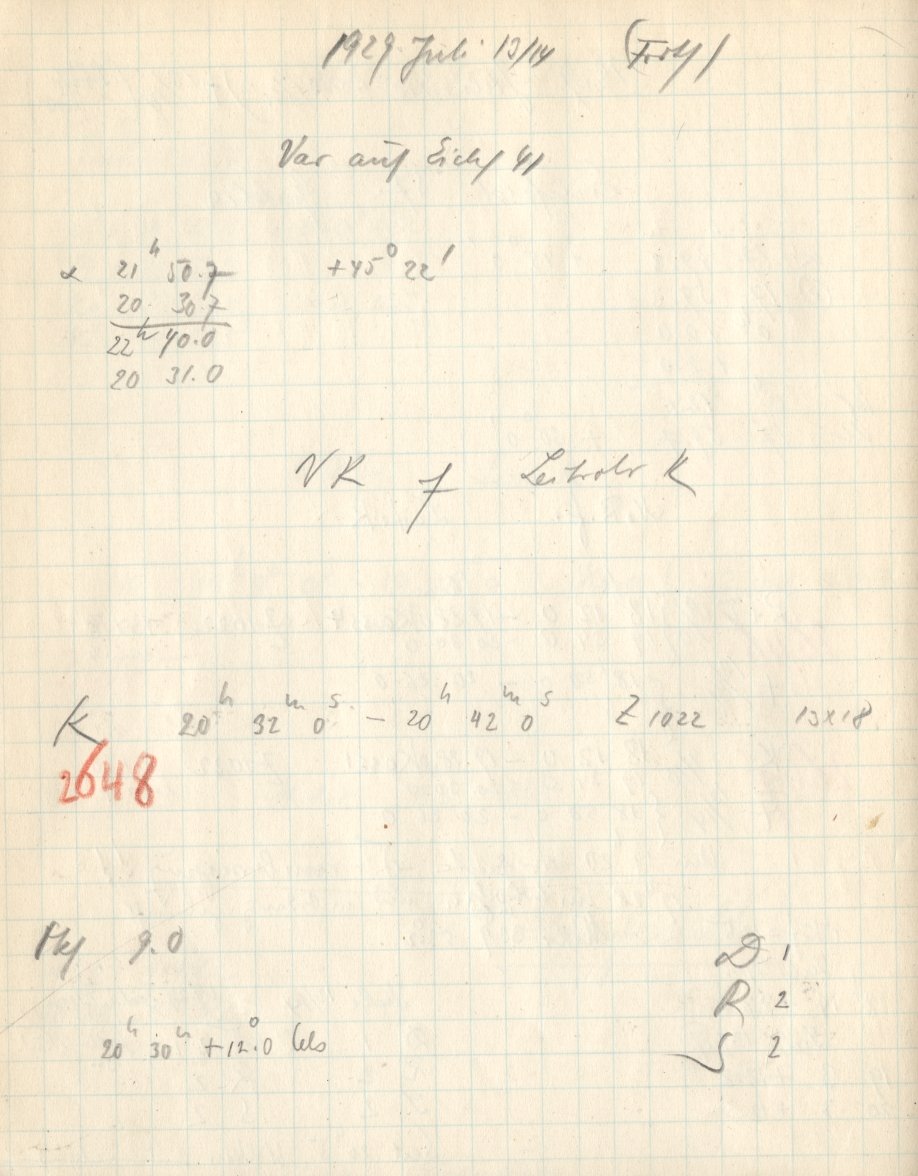 1929 Juli 13/14 (Forts)
Var auf Eichf 41
α 21ʰ 50.7 +45° 22'
20 30.7
22ʰ 40.0
20 31.0
VK f Leitrohr K
K 20ʰ 32ᵐ 0ˢ – 20ʰ 42ᵐ 0ˢ Z 1022 13x18
2648
9.0
D 1
R 2
S 2
20ʰ 30ᵐ +12.°0 Cels